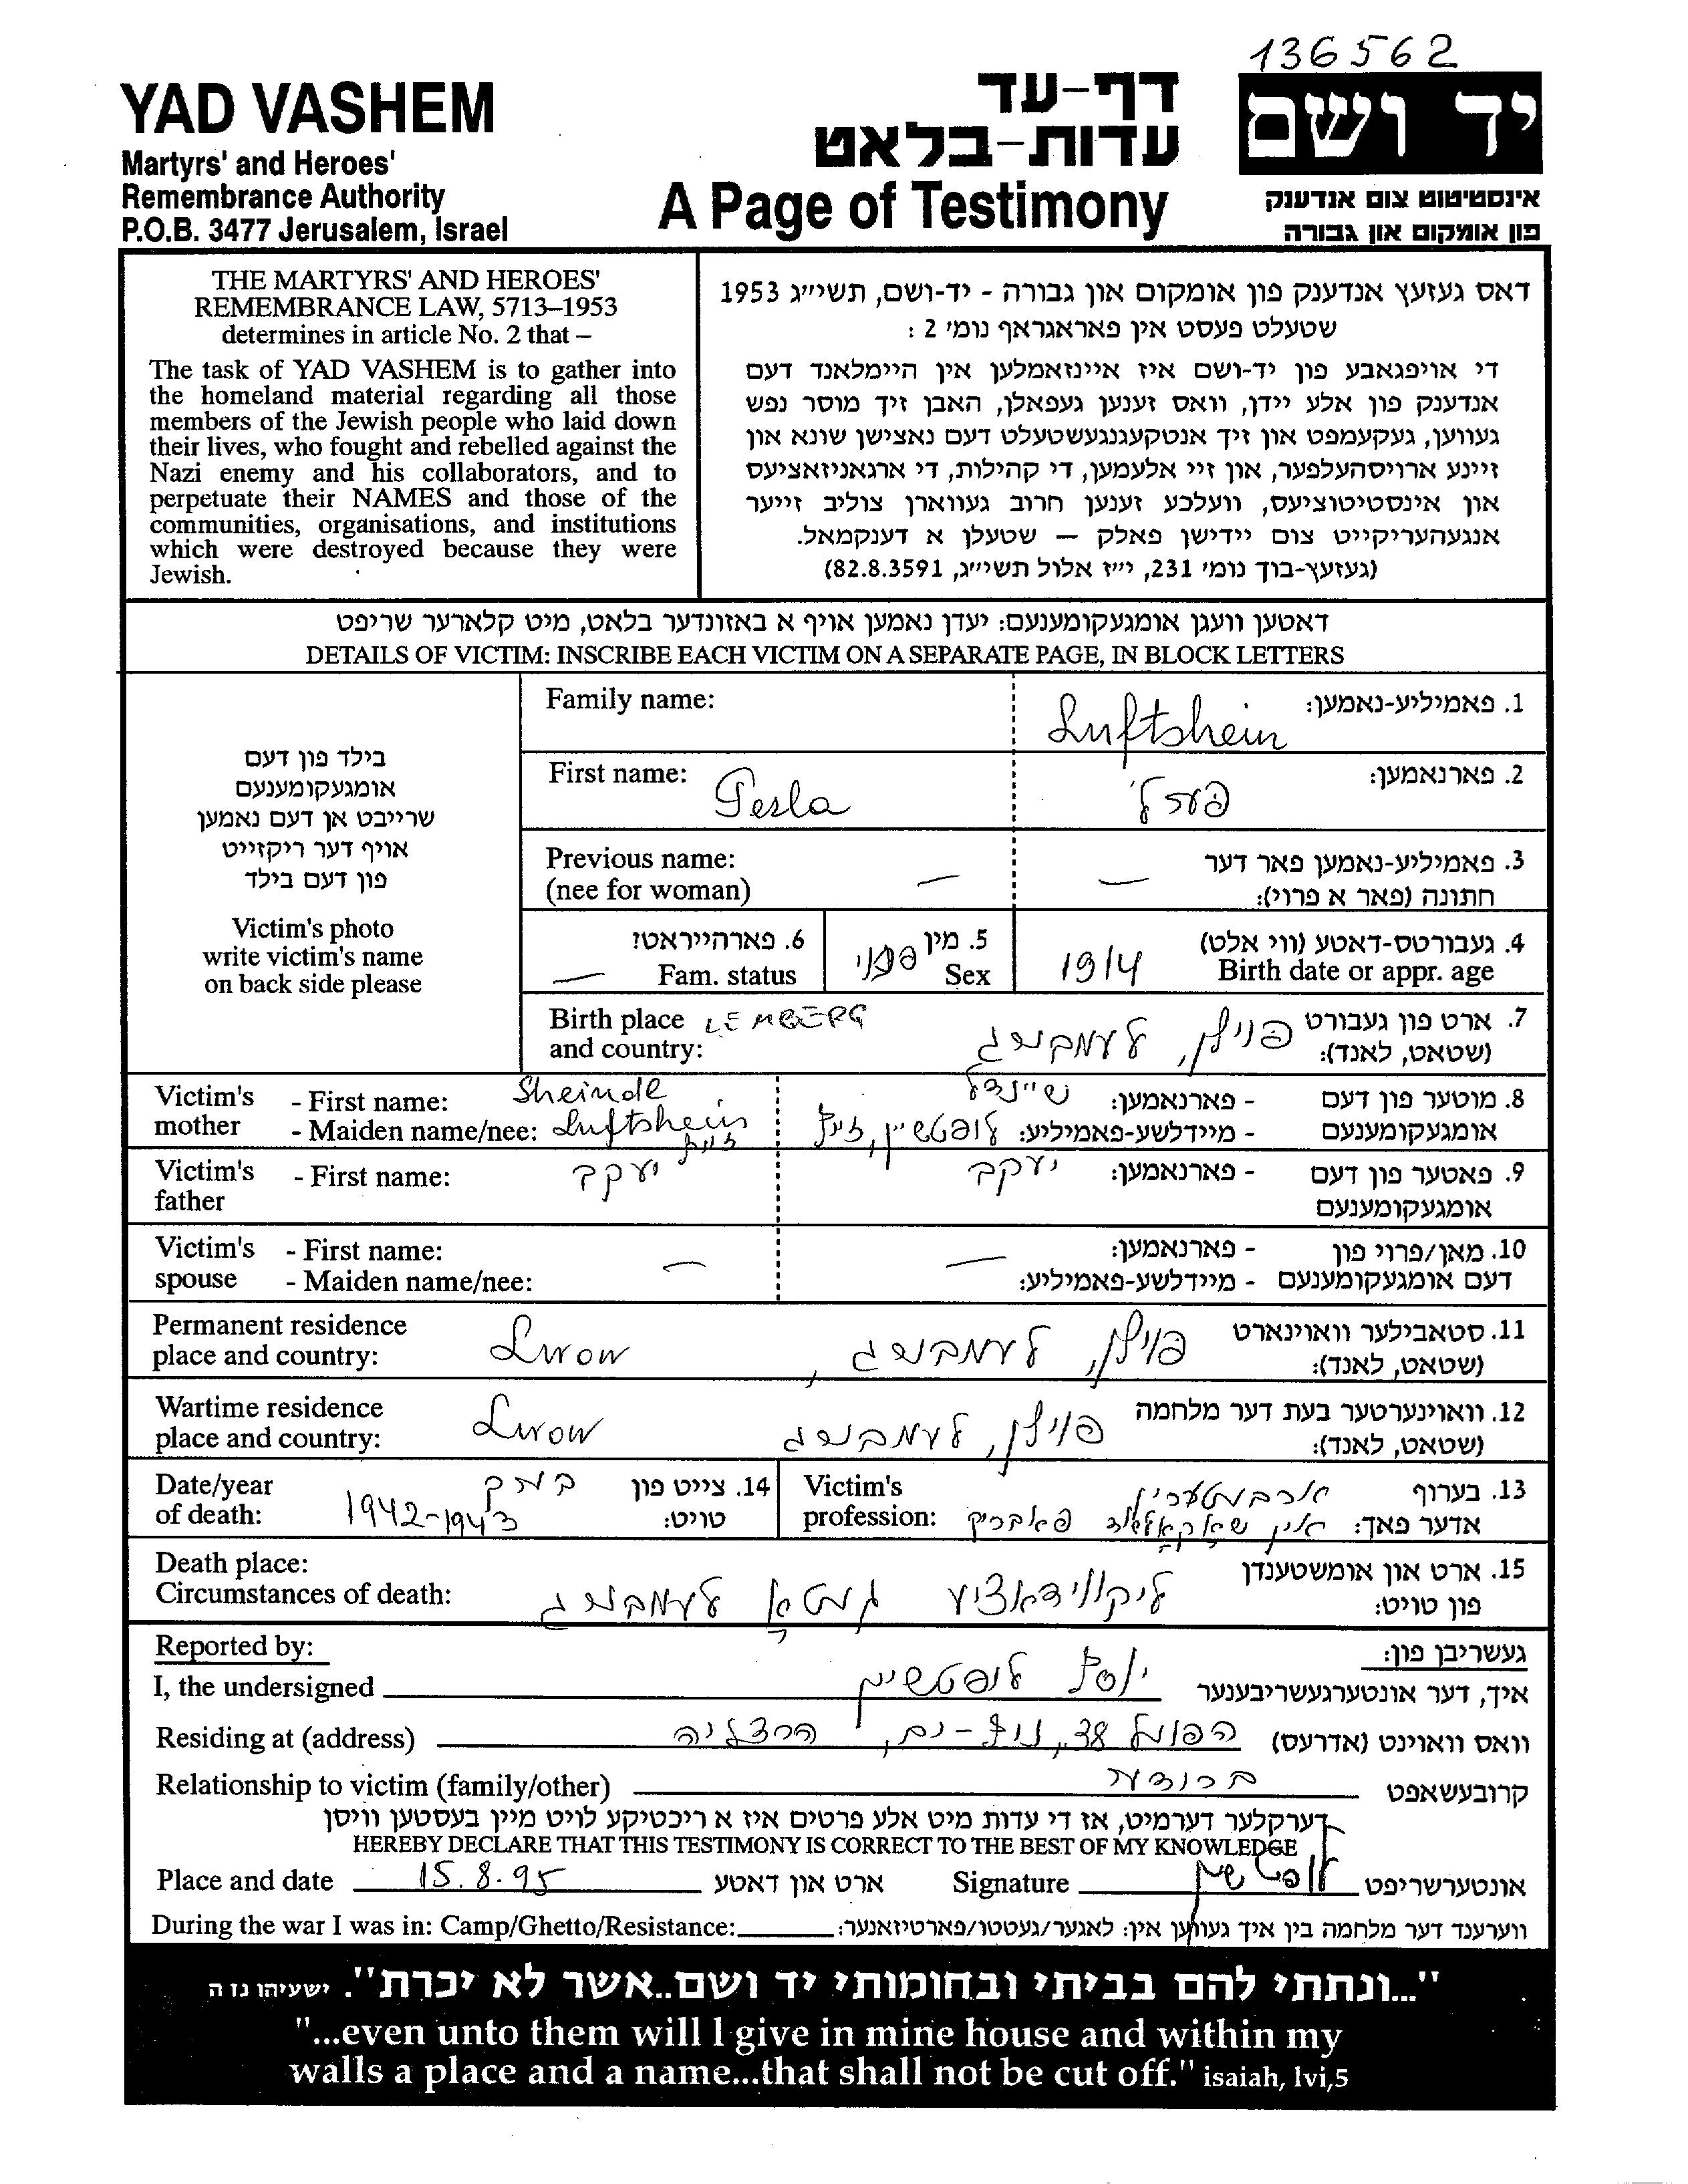 136562
YAD VASHEM
Martyrs' and Heroes'
Remembrance Authority
P.O.B. 3477 Jerusalem, Israel
דף-עד
עדות-בלאט
A Page of Testimony
יד ושם
אינסטיטוט צום אנדענק
פון אומקום און גבורה
THE MARTYRS' AND HEROES'
REMEMBRANCE LAW, 5713–1953
determines in article No. 2 that –
The task of YAD VASHEM is to gather into
the homeland material regarding all those
members of the Jewish people who laid down
their lives, who fought and rebelled against the
Nazi enemy and his collaborators, and to
perpetuate their NAMES and those of the
communities, organisations, and institutions
which were destroyed because they were
Jewish.
דאס געזעץ אנדענק פון אומקום און גבורה - יד-ושם, תשי״ג 1953
שטעלט פעסט אין פאראגראף נומ׳ 2 :
די אויפגאבע פון יד-ושם איז איינזאמלען אין היימלאנד דעם
אנדענק פון אלע יידן, וואס זענען געפאלן, האבן זיך מוסר נפש
געווען, געקעמפט און זיך אנטקעגנגעשטעלט דעם נאצישן שונא און
זיינע ארויסהעלפער, און זיי אלעמען, די קהילות, די ארגאניזאציעס
און אינסטיטוציעס, וועלכע זענען חרוב געווארן צוליב זייער
אנגעהעריקייט צום יידישן פאלק — שטעלן א דענקמאל.
(געזעץ-בוך נומ׳ 231, י״ז אלול תשי״ג, 82.8.3591)
דאטען וועגן אומגעקומענעם: יעדן נאמען אויף א באזונדער בלאט, מיט קלארער שריפט
DETAILS OF VICTIM: INSCRIBE EACH VICTIM ON A SEPARATE PAGE, IN BLOCK LETTERS
בילד פון דעם
אומגעקומענעם
שרייבט אן דעם נאמען
אויף דער ריקזייט
פון דעם בילד
Victim's photo
write victim's name
on back side please
Family name: Luftshein 1. פאמיליע-נאמען:
First name: Perla פערל 2. פארנאמען:
Previous name: — — 3. פאמיליע-נאמען פאר דער
(nee for woman) חתונה (פאר א פרוי):
6. פארהייראט? 5. מין 4. געבורטס-דאטע (ווי אלט)
— Fam. status Sex 1914 Birth date or appr. age
Birth place LEMBERG פוילן, לעמבערג 7. ארט פון געבורט
and country: (שטאט, לאנד):
Victim's - First name: Sheindl שיינדל - פארנאמען: 8. מוטער פון דעם
mother - Maiden name/nee: Luftshein לופטשיין - מיידלשע-פאמיליע: אומגעקומענעם
Victim's - First name: יעקב יעקב - פארנאמען: 9. פאטער פון דעם
father אומגעקומענעם
Victim's - First name: — — - פארנאמען: 10. מאן/פרוי פון
spouse - Maiden name/nee: - מיידלשע-פאמיליע: דעם אומגעקומענעם
Permanent residence Lwow פוילן, לעמבערג, 11. סטאבילער וואוינארט
place and country: (שטאט, לאנד):
Wartime residence Lwow פוילן, לעמבערג 12. וואוינערטער בעת דער מלחמה
place and country: (שטאט, לאנד):
Date/year 14. צייט פון Victim's ארבעטערין 13. בערוף
of death: 1942-1943 טויט: profession: אין שאקאלאד פאבריק אדער פאך:
Death place: 15. ארט און אומשטענדן
Circumstances of death: ליקווידאציע געטא לעמבערג פון טויט:
Reported by: געשריבן פון:
I, the undersigned יוסף לופטשיין איך, דער אונטערגעשריבענער
Residing at (address) 38, נוף-ים, הרצליה וואס וואוינט (אדרעס)
Relationship to victim (family/other) קרובעשאפט
דערקלער דערמיט, אז די עדות מיט אלע פרטים איז א ריכטיקע לויט מיין בעסטען וויסן
HEREBY DECLARE THAT THIS TESTIMONY IS CORRECT TO THE BEST OF MY KNOWLEDGE
Place and date 15.8.95 ארט און דאטע Signature לופטשיין אונטערשריפט
During the war I was in: Camp/Ghetto/Resistance: ווערענד דער מלחמה בין איך געווען אין: לאגער/געטטו/פארטיזאנער:
"...ונתתי להם בביתי ובחומותי יד ושם..אשר לא יכרת". ישעיהו נז ה
"...even unto them will I give in mine house and within my
walls a place and a name...that shall not be cut off." isaiah, lvi,5